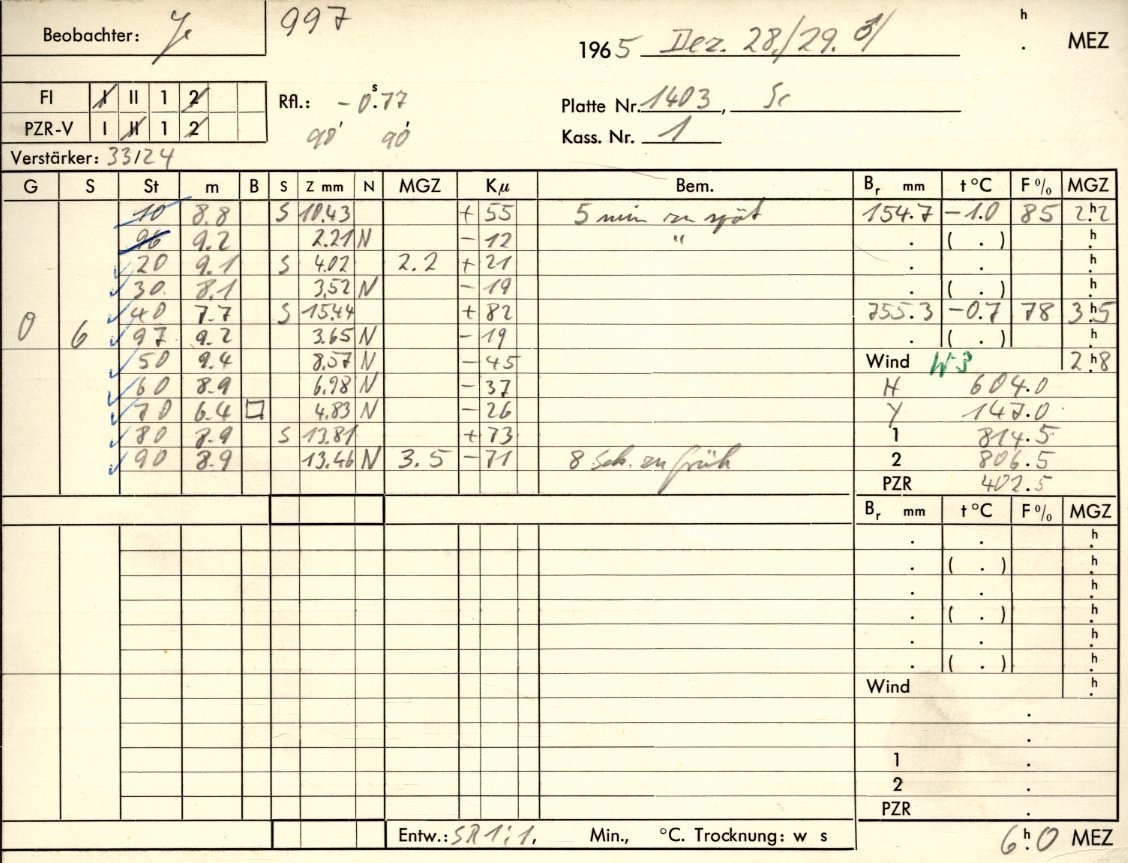 Beobachter: Je 997 1965 Dez. 28./29. h . MEZ
FI I II 1 2 Rfl.: - 0s.77 Platte Nr. 1403, Sc
PZR-V I II 1 2 90' 90' Kass. Nr. 1
Verstärker: 33/24
G S St m B S Z mm N MGZ Kμ Bem. Br mm t °C F % MGZ
10 8.8 S 10.43 + 55 5 min zu spät 754.7 -1.0 85 2h.2
96 9.2 2.21 N - 12 " . ( . ) h.
20 9.1 S 4.02 2.2 + 21 . . h.
30 8.1 3.52 N - 19 . ( . ) h.
0 6 40 7.7 S 15.44 + 82 755.3 -0.7 78 3h.5
97 9.2 3.65 N - 19 . ( . ) h.
50 9.4 8.57 N - 45 Wind W3 2h.8
60 8.9 6.98 N - 37 H 604.0
70 6.4 □ 4.83 N - 26 Y 147.0
80 8.9 S 13.81 + 73 1 814.5
90 8.9 13.46 N 3.5 - 71 8 Sek. zu früh 2 806.5
PZR 402.5
Br mm t °C F % MGZ
. . h.
. ( . ) h.
. . h.
. ( . ) h.
. . h.
. ( . ) h.
Wind h.
.
.
1 .
2 .
PZR .
Entw.: SR 1:1. Min., °C. Trocknung: w s 6h.0 MEZ